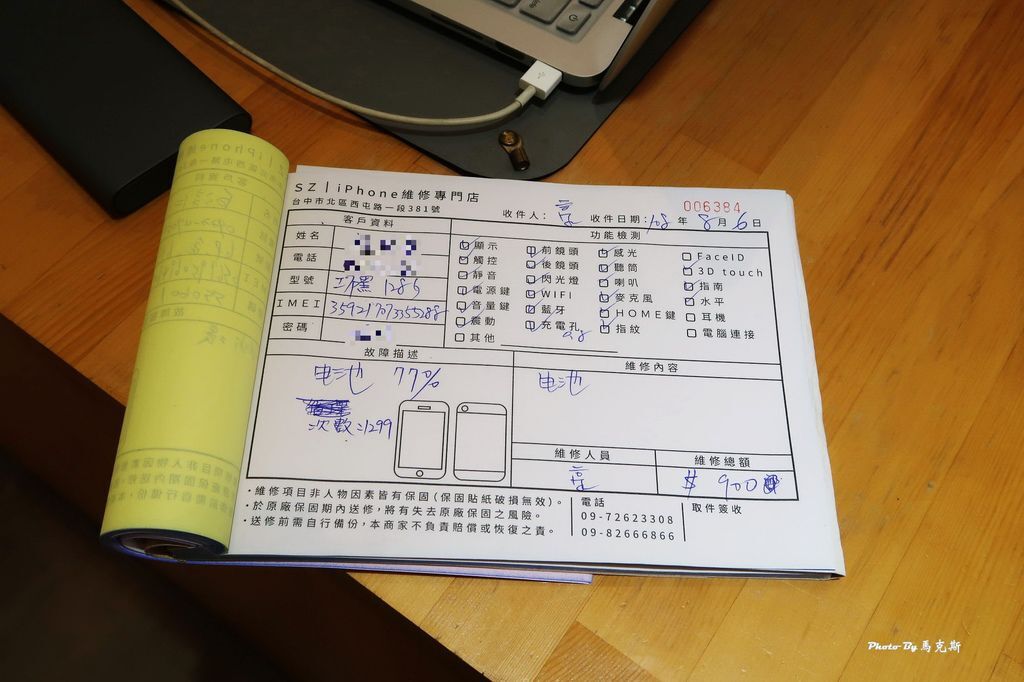 SZ | iPhone維修專門店
006384
台中市北區西屯路一段381號
收件人： 收件日期：108 年 8 月 6 日
客戶資料
功能檢測
姓名
電話
型號 128G
IMEI
密碼
顯示
觸控
靜音
電源鍵
音量鍵
震動
其他
前鏡頭
後鏡頭
閃光燈
WIFI
藍牙
充電孔
感光
聽筒
喇叭
麥克風
HOME鍵
指紋
FaceID
3D touch
指南
水平
耳機
電腦連接
故障描述
电池 77%
次數:1299
維修內容
电池
維修人員
維修總額
$ 900
・維修項目非人物因素皆有保固(保固貼紙破損無效)。
・於原廠保固期內送修，將有失去原廠保固之風險。
・送修前需自行備份，本商家不負責賠償或恢復之責。
電話
09-72623308
09-82666866
取件簽收
Photo By 馬克斯